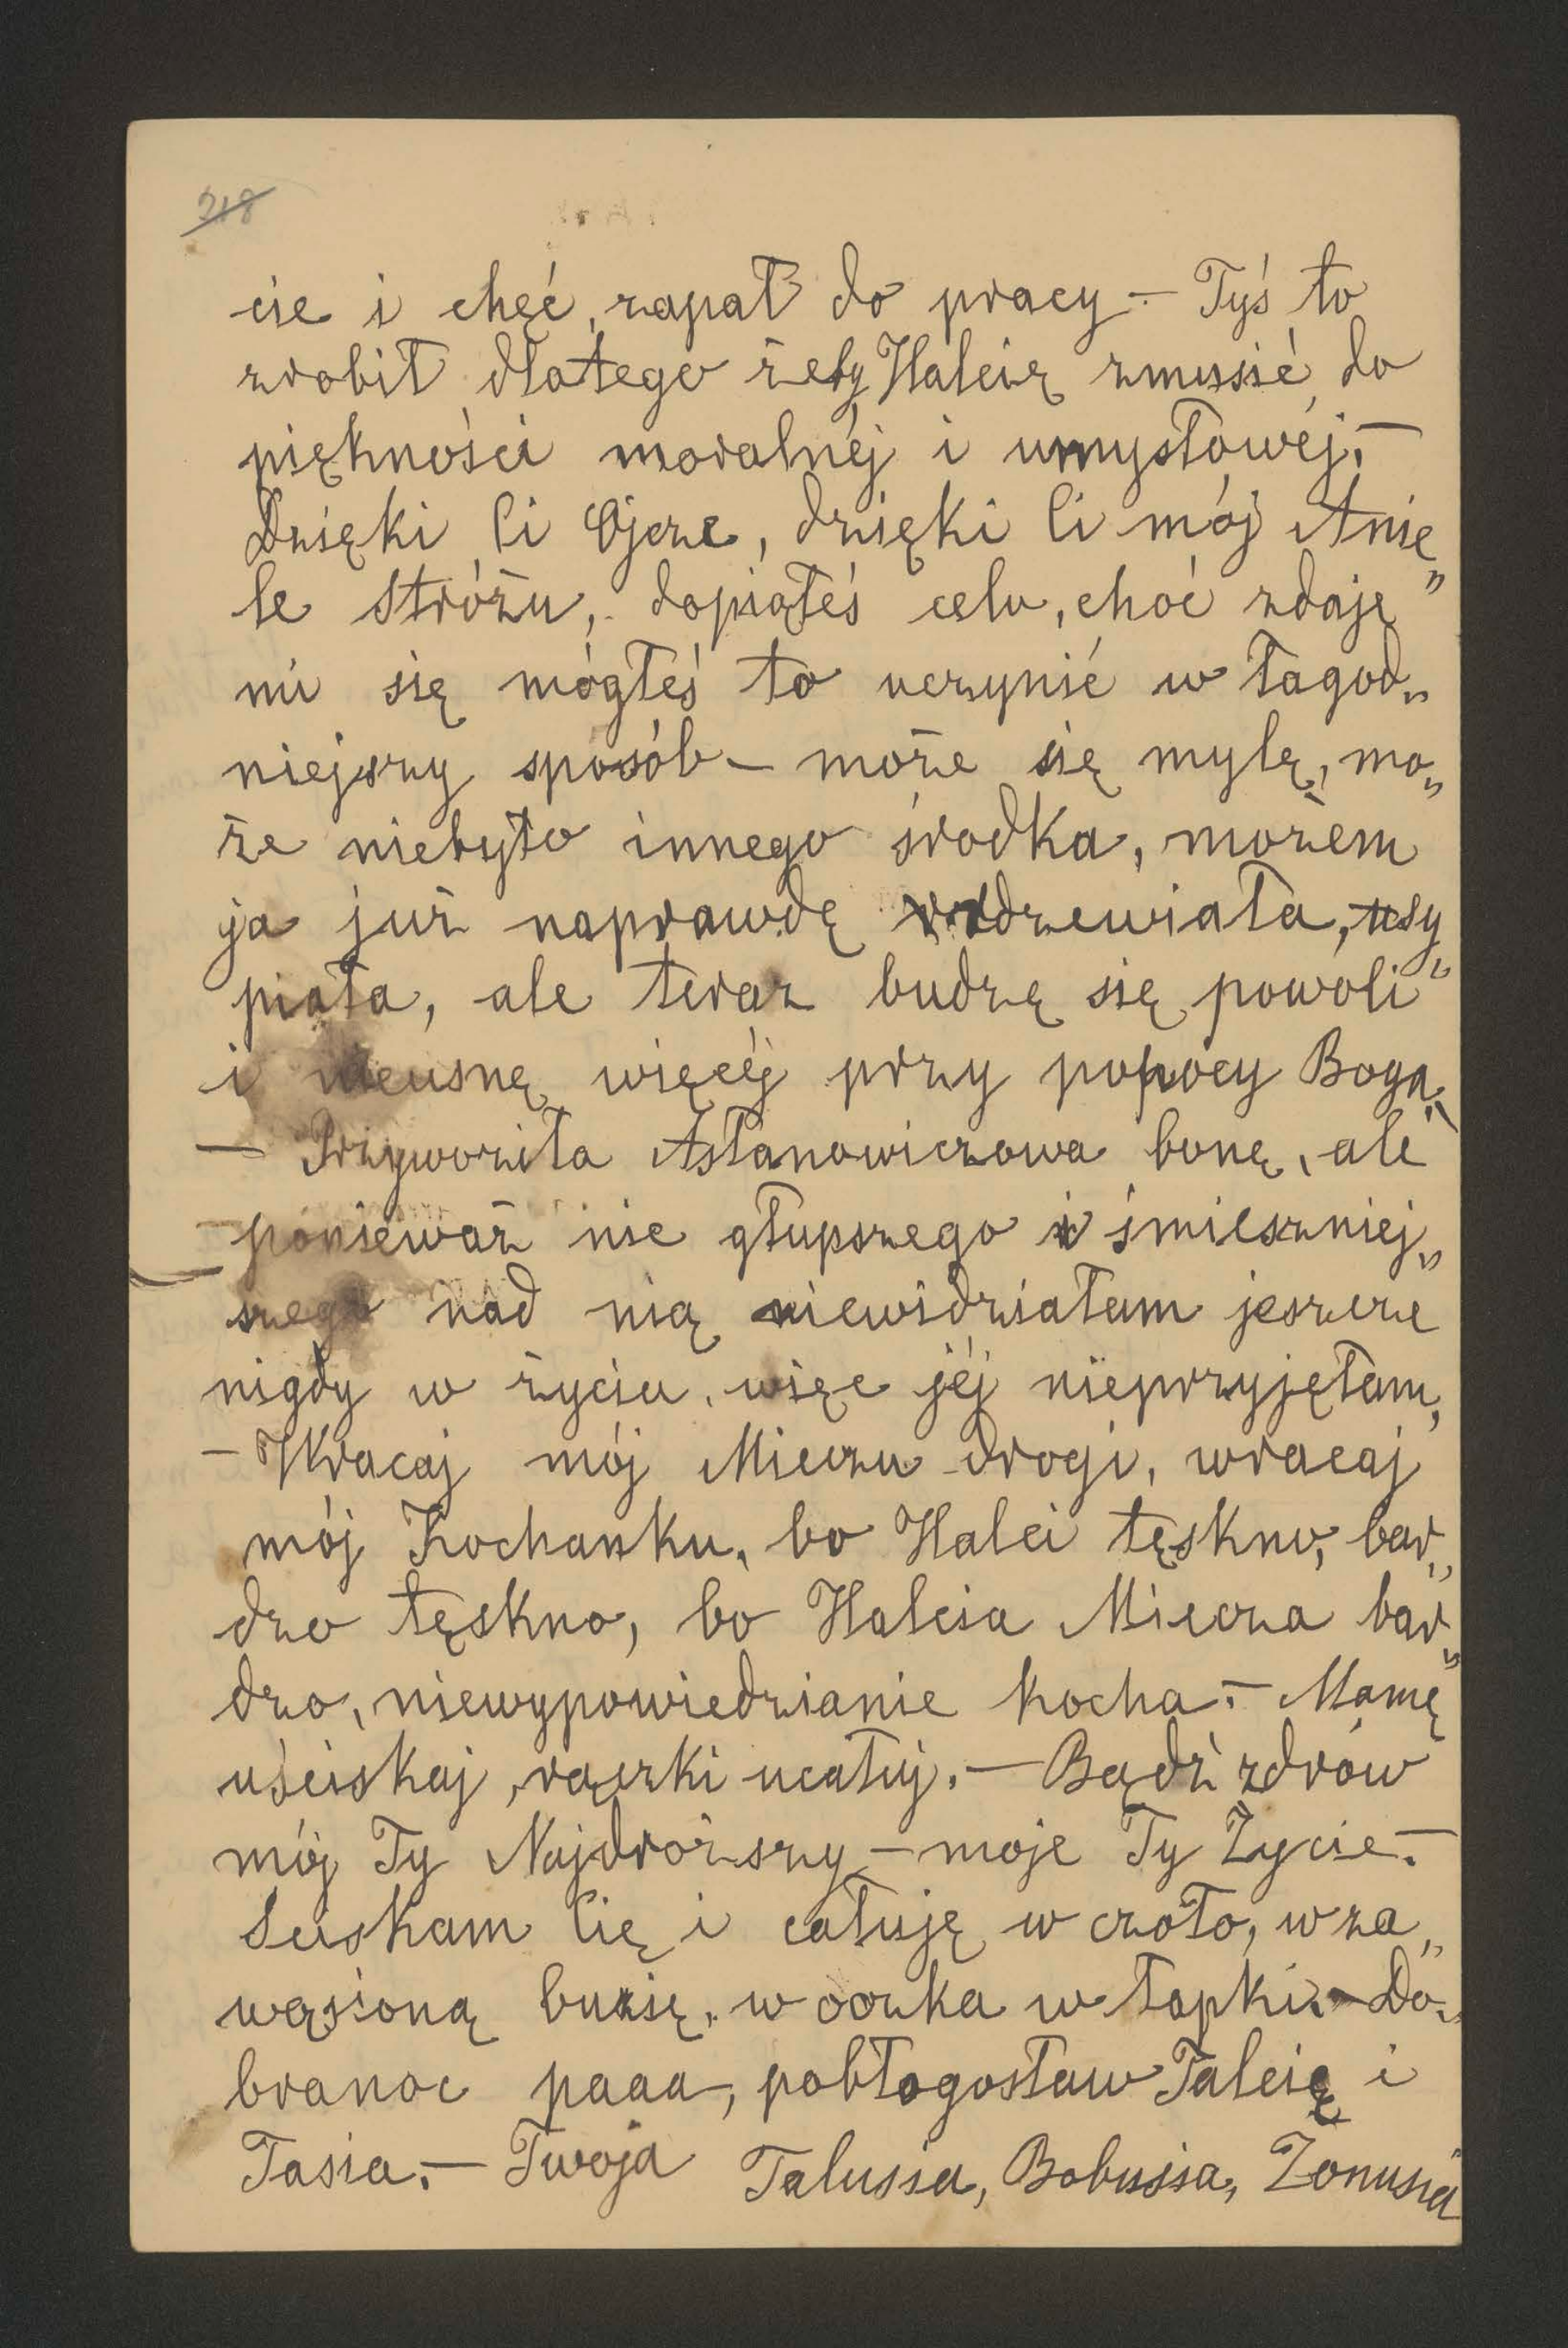 218
cie i chęć, zapał do pracy – Tyś to
zrobił dlatego żeby Halcię zmusić do
piękności moralnéj i umysłowéj. –
Dzięki Ci Ojcze, dzięki Ci mój Anie„
le Stróżu, dopiąłeś celu, choć zdaje
mi się mógłeś to uczynić w łagod„
niejszy sposób – może się mylę, mo„
że niebyło innego środka, możem
ja już naprawdę rdzewiała, usy„
piała, ale teraz budzę się powoli
i nieusnę więcéj przy pomocy Boga.
– Przywoziła Asłanowiczowa bonę, ale
ponieważ nic głupszego i śmieszniej„
szego nad nią niewidziałam jeszcze
nigdy w życiu, więc jéj nieprzyjęłam,
– Wracaj mój Mieczu drogi, wracaj
mój Kochanku, bo Halci tęskno, bar„
dzo tęskno, bo Halcia Miecza bar„
dzo, niewypowiedzianie kocha. – Mamę
uściskaj, rączki ucałuj. – Bądź zdrów
mój Ty Najdroższy – moje Ty Życie. –
Ściskam Cię i całuję w czoło, w za„
wąsioną buzię, w oczka w łapki. – Do„
branoc paaa, pobłogosław Talcię i
Tasia. – Twoja Talusia, Bobusia, Żonusia